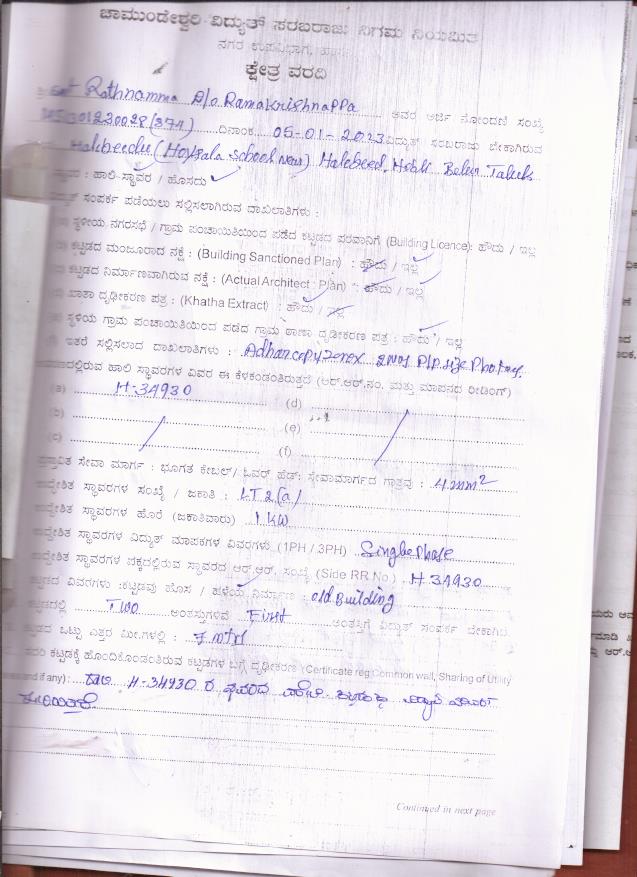 ಚಾಮುಂಡೇಶ್ವರಿ ವಿದ್ಯುತ್ ಸರಬರಾಜು ನಿಗಮ ನಿಯಮಿತ
ನಗರ ಉಪವಿಭಾಗ,
ಕ್ಷೇತ್ರ ವರದಿ
Rathnamma D/o Ramakrishnappa ಅವರ ಅರ್ಜಿ ನೋಂದಣಿ ಸಂಖ್ಯೆ
ದಿನಾಂಕ 05-01-2023 ವಿದ್ಯುತ್ ಸರಬರಾಜು ಬೇಕಾಗಿರುವ
Halebeedu (Hoysala school near) Halebeed, Hobli Belur Taluk
: ಹಾಲಿ-ಸ್ಥಾವರ / ಹೊಸದು
ಸಂಪರ್ಕ ಪಡೆಯಲು ಸಲ್ಲಿಸಲಾಗಿರುವ ದಾಖಲಾತಿಗಳು :
ಸ್ಥಳೀಯ ನಗರಸಭೆ / ಗ್ರಾಮ ಪಂಚಾಯಿತಿಯಿಂದ ಪಡೆದ ಕಟ್ಟಡದ ಪರವಾನಿಗೆ (Building Licence): ಹೌದು / ಇಲ್ಲ
ಕಟ್ಟಡದ ಮಂಜೂರಾದ ನಕ್ಷೆ : (Building Sanctioned Plan) : ಹೌದು / ಇಲ್ಲ
ಕಟ್ಟಡದ ನಿರ್ಮಾಣವಾಗಿರುವ ನಕ್ಷೆ : (Actual Architect : Plan) : ಹೌದು / ಇಲ್ಲ
ಖಾತಾ ದೃಢೀಕರಣ ಪತ್ರ : (Khatha Extract) : ಹೌದು / ಇಲ್ಲ
ಸ್ಥಳಿಯ ಗ್ರಾಮ ಪಂಚಾಯಿತಿಯಿಂದ ಪಡೆದ ಗ್ರಾಮ ಠಾಣಾ ದೃಢೀಕರಣ ಪತ್ರ : ಹೌದು / ಇಲ್ಲ
ಇತರೆ ಸಲ್ಲಿಸಲಾದ ದಾಖಲಾತಿಗಳು : Adhar copy zerox 2 nos P/p size Photos.
ಹಾಲಿ ಸ್ಥಾವರಗಳ ವಿವರ ಈ ಕೆಳಕಂಡಂತಿರುತ್ತದೆ (ಆರ್.ಆರ್.ನಂ. ಮತ್ತು ಮಾಪನದ ರೀಡಿಂಗ್)
(a) H-34930 (d)
(b) (e)
(c) (f)
ಪ್ರಸ್ತಾವಿತ ಸೇವಾ ಮಾರ್ಗ : ಭೂಗತ ಕೇಬಲ್/ ಓವರ್ ಹೆಡ್: ಸೇವಾಮಾರ್ಗದ ಗಾತ್ರವು : 4mm²
ಉದ್ದೇಶಿತ ಸ್ಥಾವರಗಳ ಸಂಖ್ಯೆ / ಜಕಾತಿ : LT2(a)
ಉದ್ದೇಶಿತ ಸ್ಥಾವರಗಳ ಹೊರೆ (ಜಕಾತಿವಾರು) 1 KW
ಉದ್ದೇಶಿತ ಸ್ಥಾವರಗಳ ವಿದ್ಯುತ್ ಮಾಪಕಗಳ ವಿವರಗಳು (1PH / 3PH) Single Phase
ಉದ್ದೇಶಿತ ಸ್ಥಾವರಗಳ ಪಕ್ಕದಲ್ಲಿರುವ ಸ್ಥಾವರದ ಆರ್.ಆರ್. ಸಂಖ್ಯೆ (Side RR No.) H 34930
ಕಟ್ಟಡದ ವಿವರಗಳು :ಕಟ್ಟಡವು ಹೊಸ / ಹಳೆಯ ನಿರ್ಮಾಣ : old Building
ಕಟ್ಟಡದಲ್ಲಿ Two ಅಂತಸ್ತುಗಳಿವೆ First ಅಂತಸ್ತಿಗೆ ವಿದ್ಯುತ್ ಸಂಪರ್ಕ ಬೇಕಾಗಿದೆ.
ಕಟ್ಟಡದ ಒಟ್ಟು ಎತ್ತರ ಮೀ.ಗಳಲ್ಲಿ : 7 mtrs
ಕಟ್ಟಡಕ್ಕೆ ಹೊಂದಿಕೊಂಡಂತಿರುವ ಕಟ್ಟಡಗಳ ಬಗ್ಗೆ ದೃಢೀಕರಣ (Certificate reg Common wall, Sharing of Utility
and if any) : H-34930 ರ ಸ್ಥಾವರದ
Continued in next page